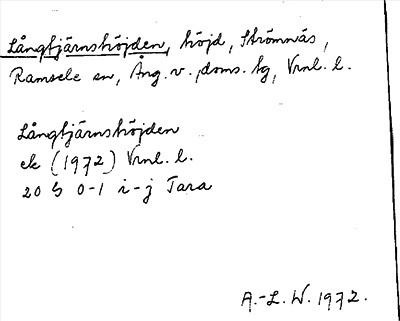 Långtjärnshöjden, höjd, Strömnäs,
Ramsele sn, Ång. v., doms. tg, Vrnl. l.
Långtjärnshöjden
ek (1972) Vrnl. l.
20 G 0-1 i-j Tara
A.-L. W. 1972.